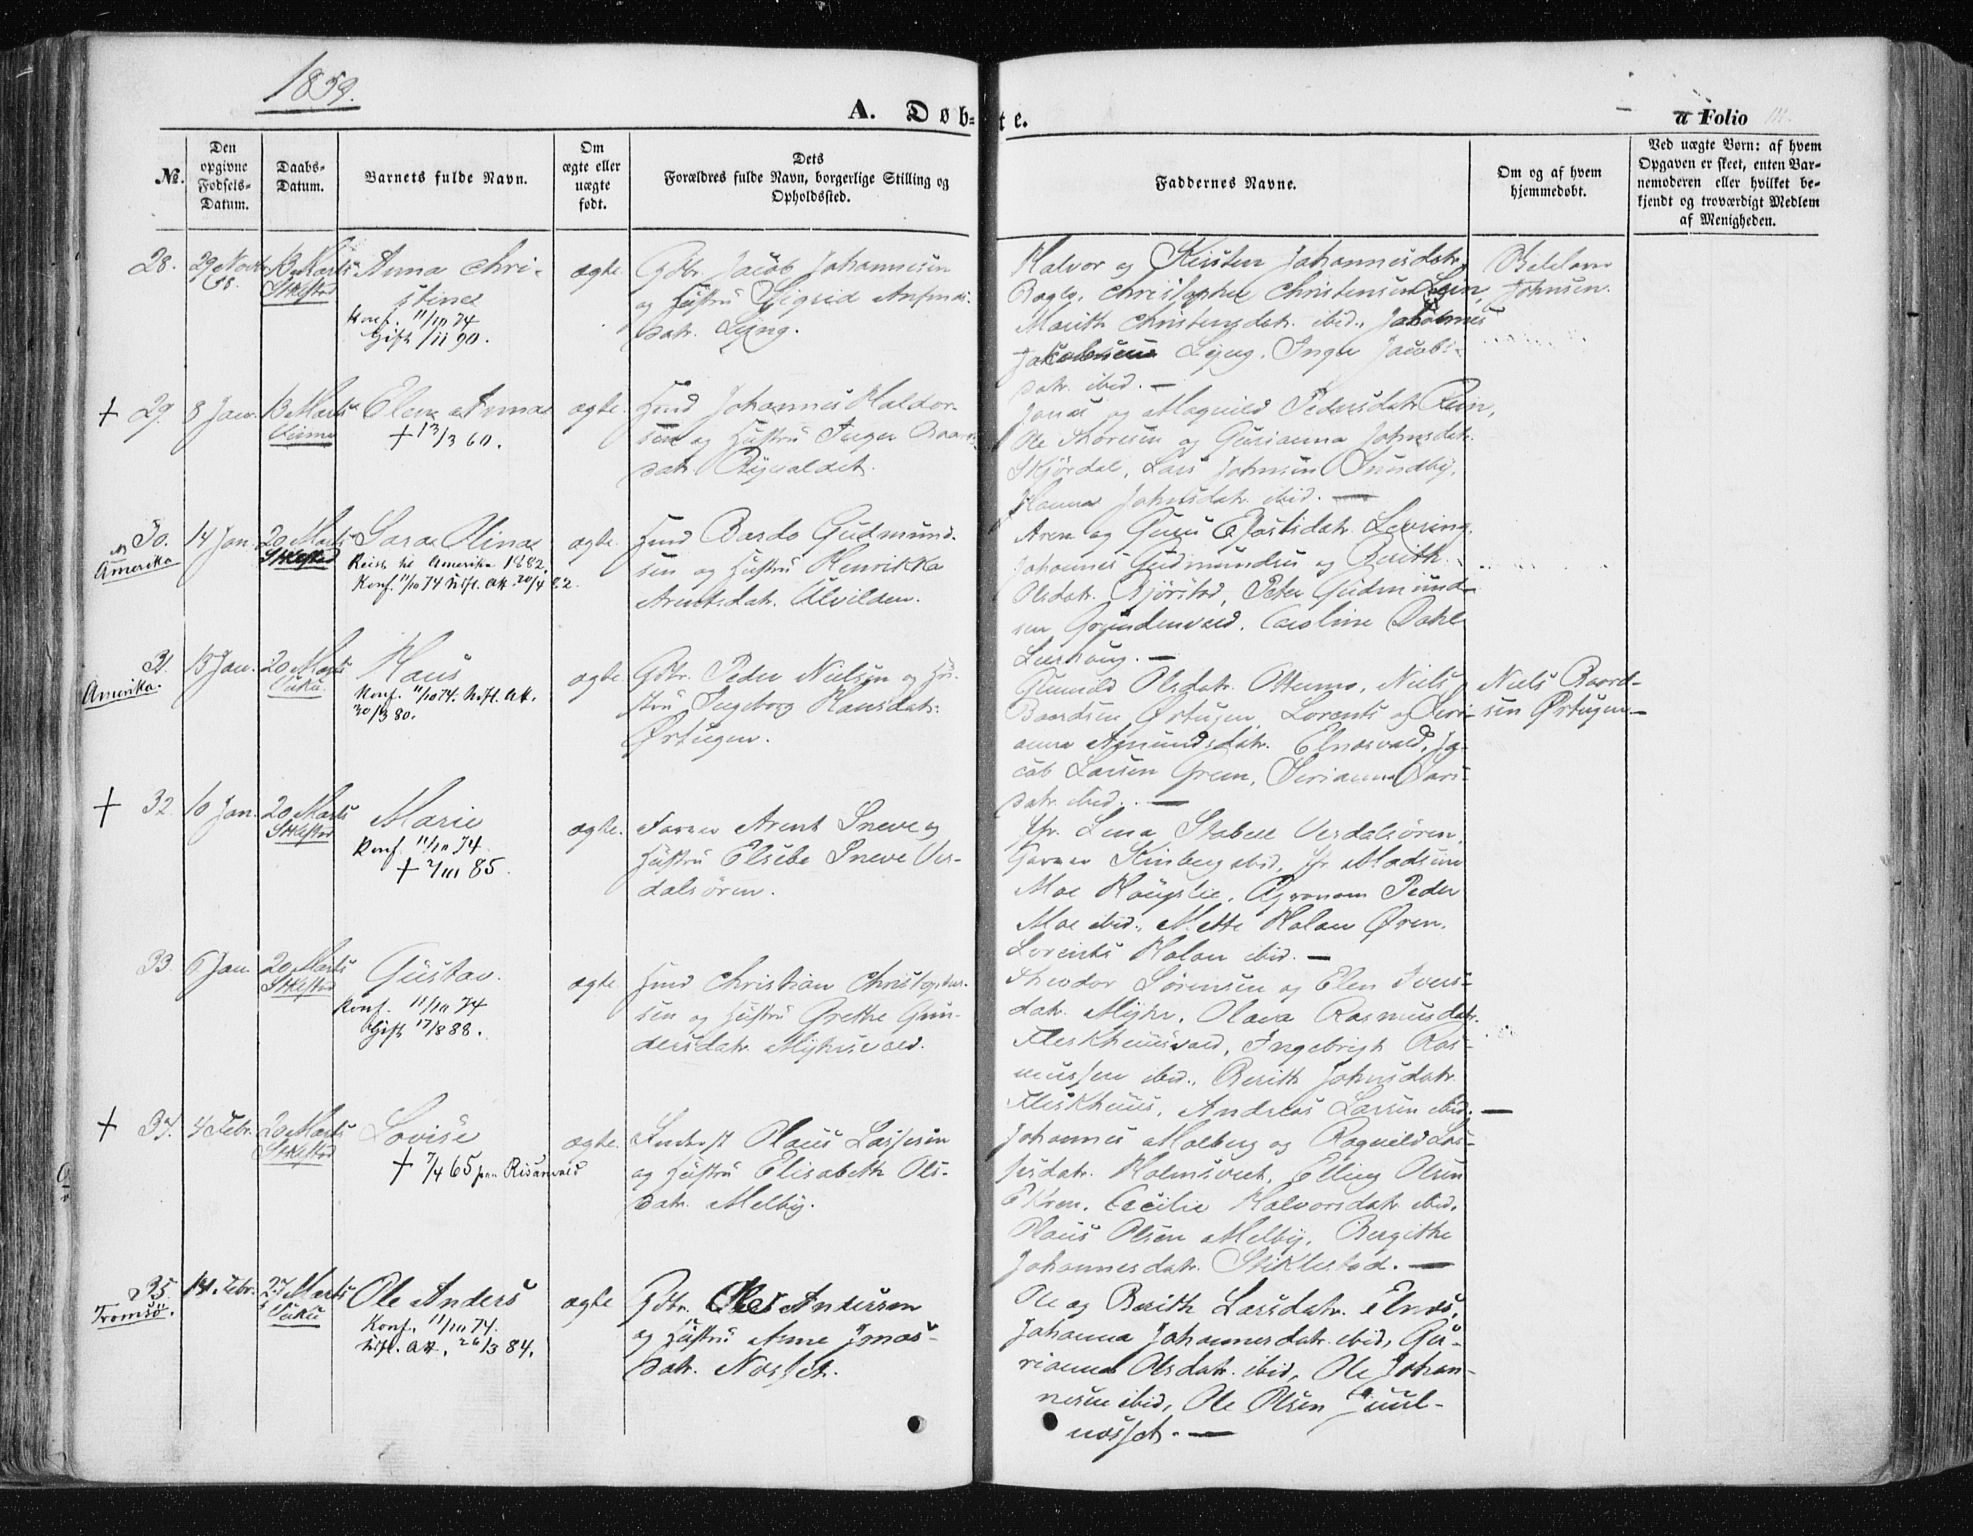 1859.
A. Døbte.
a Folio
№.
Den opgivne Fødsels-Datum.
Daabs-Datum.
Barnets fulde Navn.
Om ægte eller uægte født.
Dets Forældres fulde Navn, borgerlige Stilling og Opholdssted.
Faddernes Navne.
Om og af hvem hjemmedøbt.
Ved uægte Børn: af hvem Opgaven er skeet, enten Barnemoderen eller hvilket bekjendt og troværdigt Medlem af Menigheden.
28. 29 Novbr 58. 13 Marts Stkstad
Anna Chri-
stina
Konf. 11/10 74
Gift /11 90.
ægte
Gbr. Jacob Johannesen
og Hustru Sigrid Anfinds-
datr. Lyng.
Halvor og Kirsten Johannesdatr
Christopher Christensen Lyn,
Marith Christensdatr. ibid., Johannes
Jakobsen Lyng, Inger Jacobs-
datr. ibid. —
Johnsen.
+ 29. 8 Jan. 13 Marts Vinne
Elen Anna
+ 13/3 60.
ægte.
Hmd Johannes Haldor-
sen og Hustru Inger Baards-
datr.
Jonas og Magnild Pedersdatr Rein,
Ole Thoresen og Gurianna Johnsdatr.
Skjørdal, Lars Johnsen Sundby,
Hanna Johnsdatr. ibid. —
30. 14 Jan. 20 Marts Stklestad
N. Amerika
Sara Olina
Reist til Amerika 1882.
Konf. 11/10 74 Utfl. Att. 20/4 82.
ægte.
Hmd Bardo Gudmund-
sen og Hustru Henrikka
Arntsdatr. Ulvilden.
Aren og Guru Levring,
Johannes Gudmundsen og Berith
Olsdatr. Bjørstad, Peter Gudmund-
sen Grundenvald, Caroline Dahl
31. 15 Jan. 20 Marts Vuku.
Amerika.
Hans
Konf. 11/10 74. Utfl. Att.
30/3 80.
ægte.
Gbr. Peder Nielsen og Hu-
stru Ingeborg Hansdatr.
Ørtugen.
Gunnild Olsdatr. Ottermo, Niels
Baardsen Ørtugen, Lorents og Seri-
anna Amundsdatr. Elnesvald, Ja-
cob Larsen Green, Serianna Lars-
datr. ibid. —
Niels Baard-
sen Ørtugen —
+ 32. 10 Jan. 20 Marts Stklestad
Marie
Konf. 11/10 74.
+ 2/11 85.
ægte.
Farver Arent Sneve og
Hustru Elsebe Sneve Ver-
dalsøren.
Jfr. Lena Stabell Verdalsøren,
Garver Steinberg ibid, Jfr. Madsine
Moe Haugslie, Agronom Peder
Moe ibid., Mette Holan Øren,
Lorents Holan ibid. —
33. 6 Jan. 20 Marts Stklestad
Gustav.
Konf. 11/10 74
Gift 17/8 88.
ægte.
Hmd Christian Christopher-
sen og Hustru Grethe Gun-
dersdatr. Myhrevald.
Theodor Sørensen og Elen Ivers-
datr. Myhr, Olava Rasmusdatr.
Fleskhusvald, Ingebrigt Ras-
mussen ibid., Berith Johnsdatr.
Fleskhus, Andreas Larsen ibid. —
+ 34. 4 Febr. 20 Marts Stklestad
Lovise
+ 7/4 65 paa Risanvald
ægte.
Olaus Lassesen
og Hustru Elisabeth Ols-
datr. Melby.
Johannes Molberg og Ragnild Las-
sesdatr. Holmsveet, Elling Olsen
Ekren, Cecilie Halvorsdatr ibid.
Olaus Olsen Melby, Bergithe
Johannesdatr. Stiklestad. —
35. 14. Febr. 27 Marts Vuku
Tromsø.
Ole Anders
Konf. 11/10 74.
Utfl. Att. 26/3 84.
ægte
Gbr. Ole Andersen
og Hustru Anne Jonas-
datr. Næsset.
Ole og Berith Larsdatr. Elnes,
Johanna Johannesdatr. ibid, Gu-
rianna Olsdatr. ibid, Ole Johan-
nesen ibid, Ole Olsen Juul-
næsset. —